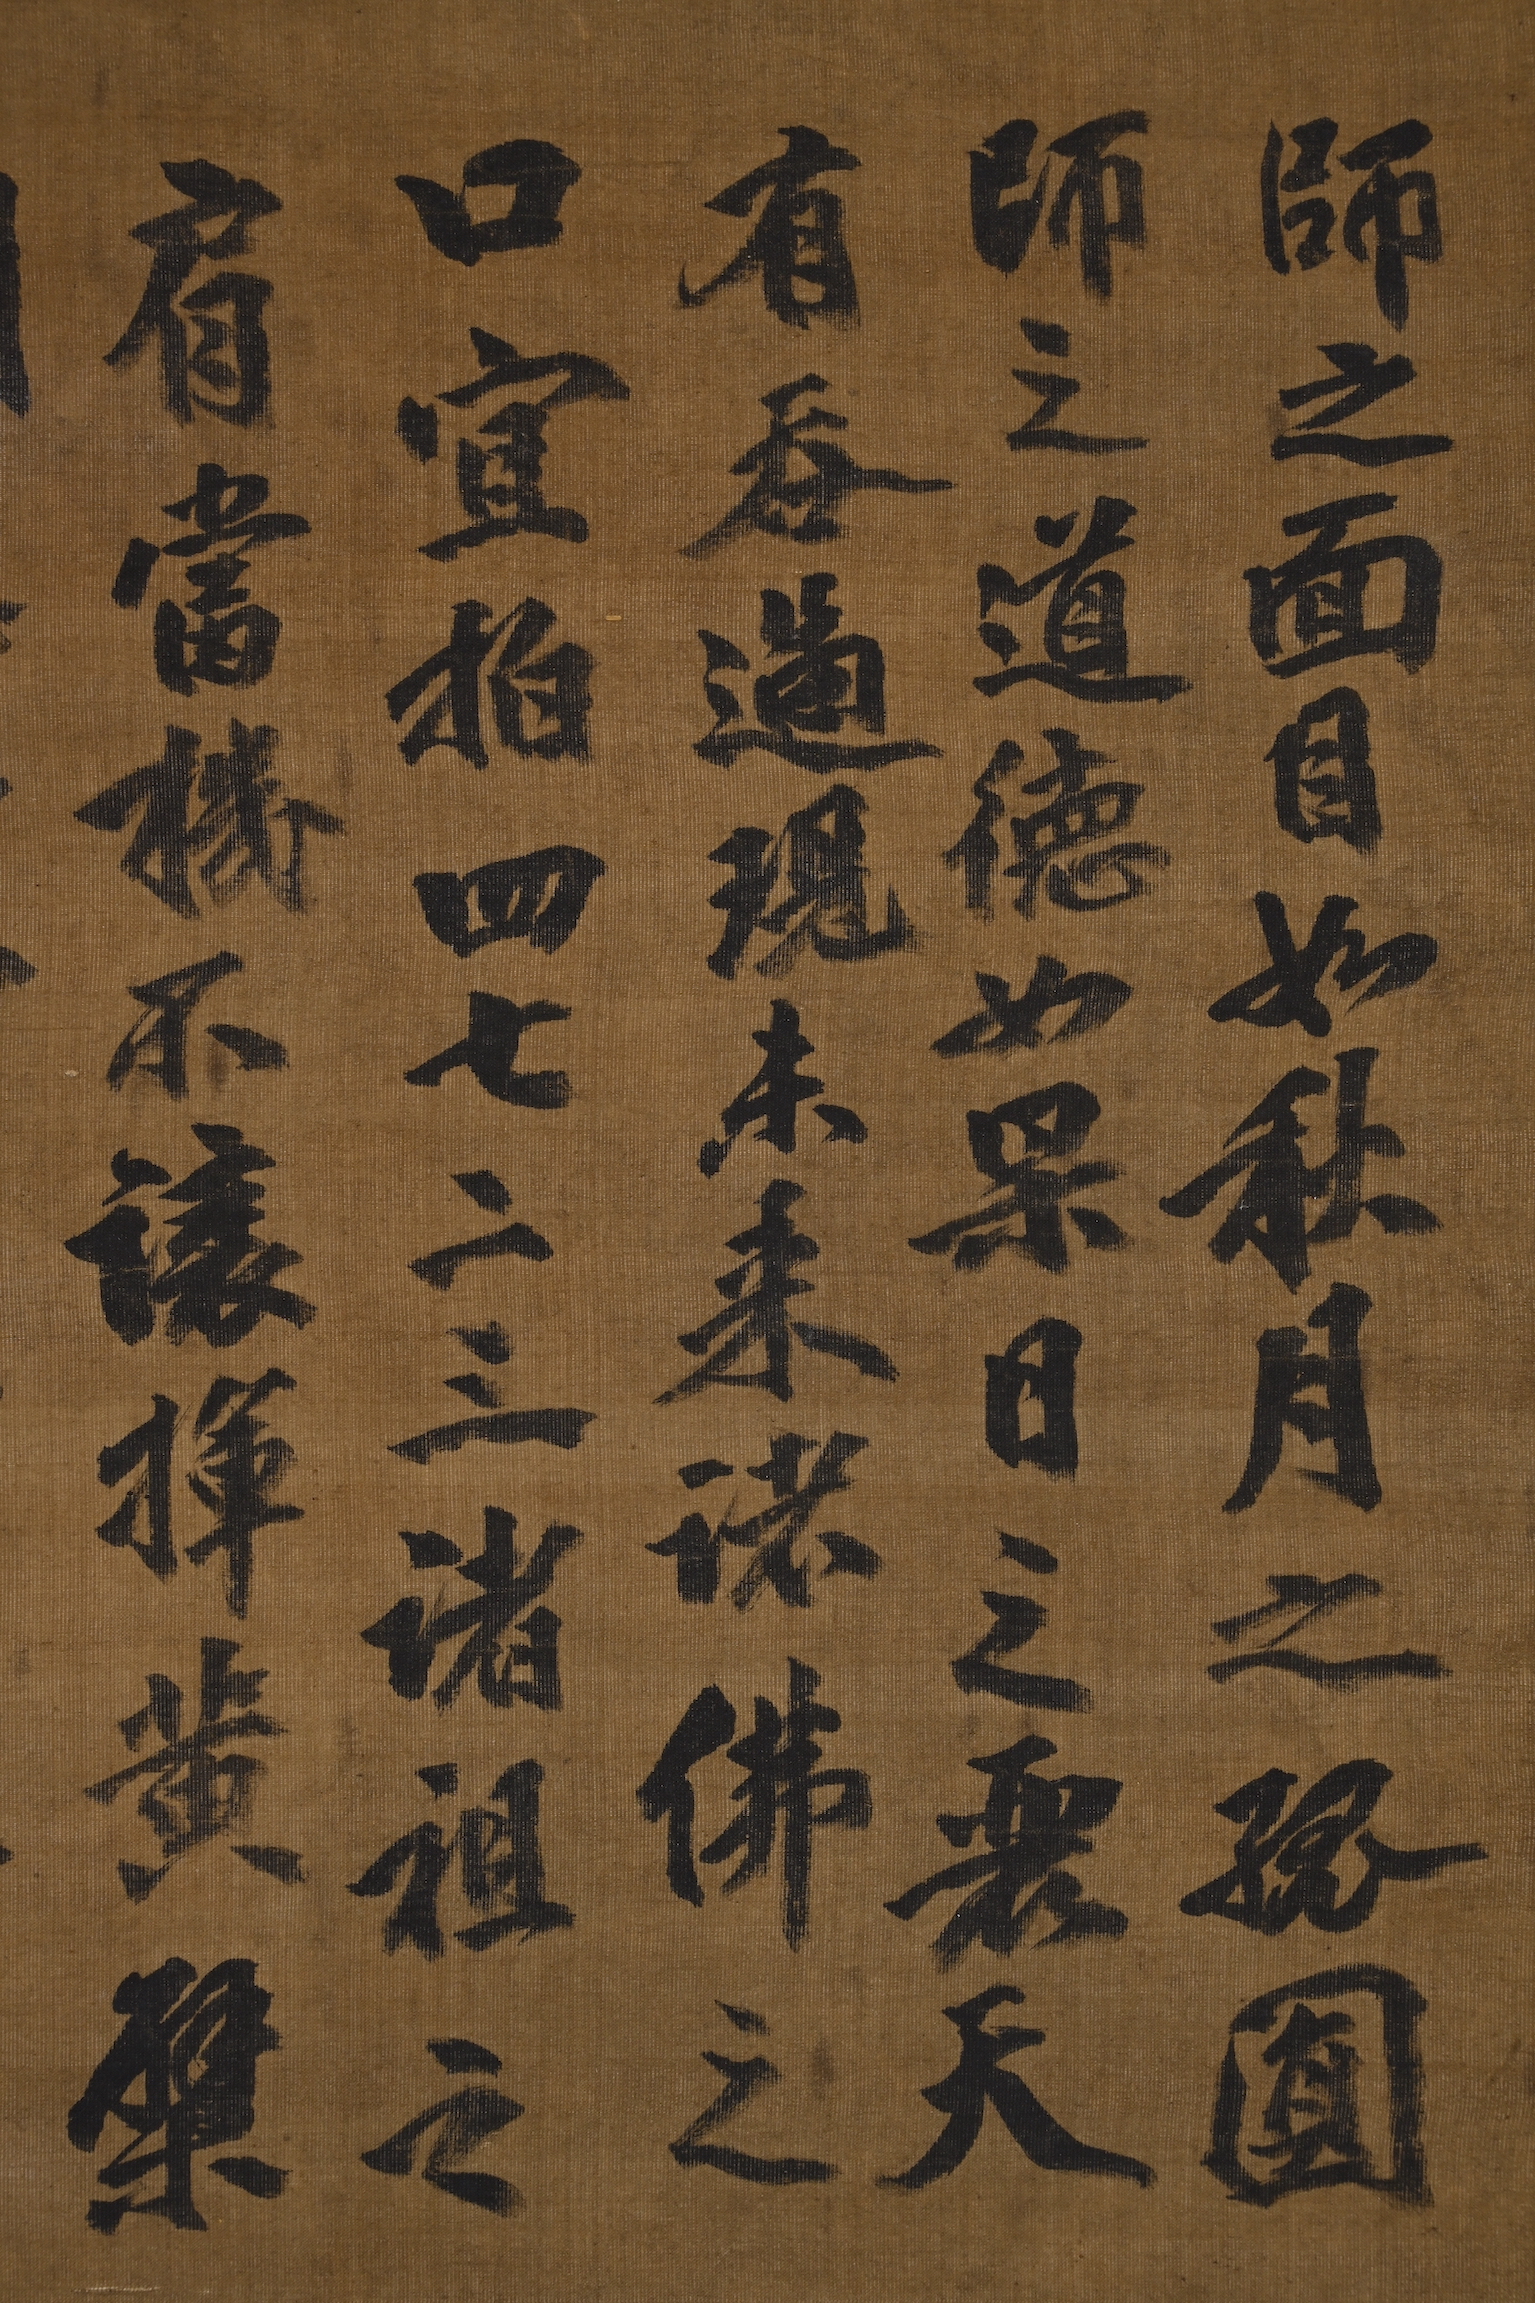 師之面目如秋月之孤圓
師之道德如杲日之麗天
有吞過現未來諸佛之
口宜拍四七二三諸祖之
肩當機不讓揮黃檗